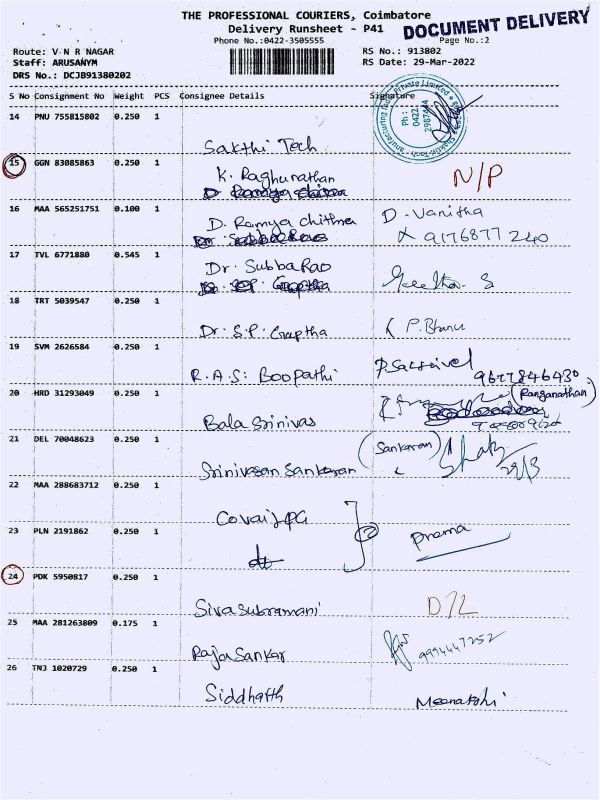 THE PROFESSIONAL COURIERS, Coimbatore
DOCUMENT DELIVERY
Delivery Runsheet - P41
Phone No.:0422-3505555
Page No.:2
Route: V N R NAGAR
RS No.: 913802
Staff: ARUSANYM
RS Date: 29-Mar-2022
DRS No.: DCJB91380202
S No Consignment No Weight PCS Consignee Details Signature
14 PNU 755815802 0.250 1
Ph : 0422 2987444
Sakthi Tech
15 GGN 83085863 0.250 1
K. Raghunathan
N/P
16 MAA 565251751 0.100 1
D. Ramya chithra
D. Vanitha
9176877240
17 TVL 6771880 0.545 1
Dr. SubbaRao
Geetha. S
18 TRT 5039547 0.250 1
Dr. S.P. Guptha
P. Bhanu
19 SVM 2626584 0.250 1
R.A.S. Boopathi
9677846430
20 HRD 31293049 0.250 1
(Ranganathan)
Bala Srinivas
21 DEL 70048623 0.250 1
(Sankaran)
29/3
Srinivasan Sankaran
22 MAA 288683712 0.250 1
Covai LPG
② 
23 PLN 2191862 0.250 1
prema
24 PDK 5950817 0.250 1
Sivasubramani
D/L
25 MAA 281263809 0.175 1
Raja Sankar
9994447252
26 TNJ 1020729 0.250 1
Siddharth
Meenatshi